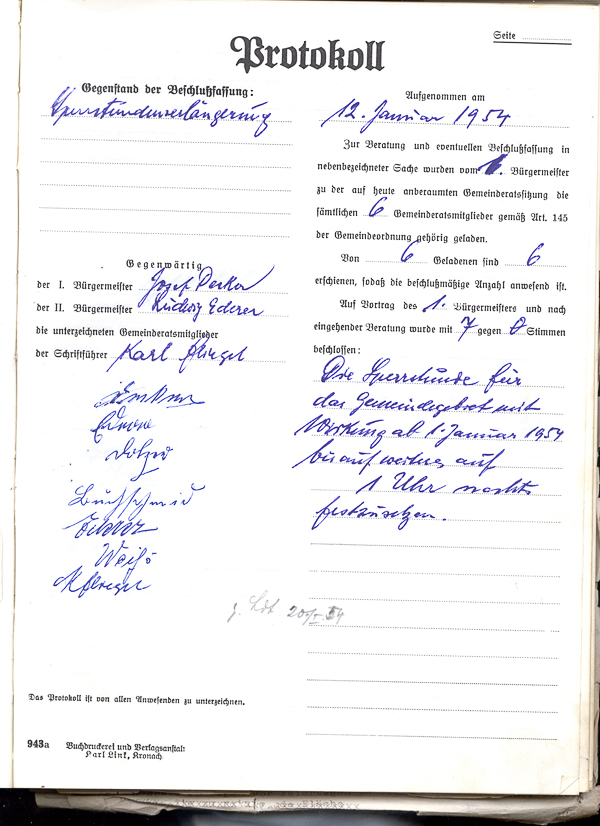 Seite
Protokoll
Gegenstand der Beschlußfassung:
Sperrstundenverlängerung
Gegenwärtig
der I. Bürgermeister Josef
der II. Bürgermeister Ludwig Ederer
die unterzeichneten Gemeinderatsmitglieder
der Schriftführer Karl Pfliegel
Ederer
Buchschmid
Ederer
Weiß
KPfliegel
Das Protokoll ist von allen Anwesenden zu unterzeichnen.
943a Buchdruckerei und Verlagsanstalt
Karl Link, Kronach
Aufgenommen am
12. Januar 1954
Zur Beratung und eventuellen Beschlußfassung in
nebenbezeichneter Sache wurden vom 1. Bürgermeister
zu der auf heute anberaumten Gemeinderatssitzung die
sämtlichen 6 Gemeinderatsmitglieder gemäß Art. 145
der Gemeindeordnung gehörig geladen.
Von 6 Geladenen sind 6
erschienen, sodaß die beschlußmäßige Anzahl anwesend ist.
Auf Vortrag des 1. Bürgermeisters und nach
eingehender Beratung wurde mit 7 gegen 0 Stimmen
beschlossen:
Die Sperrstunde für
das Gemeindegebiet mit
Wirkung ab 1. Januar 1954
bis auf weiteres auf
1 Uhr nachts
festzusetzen.